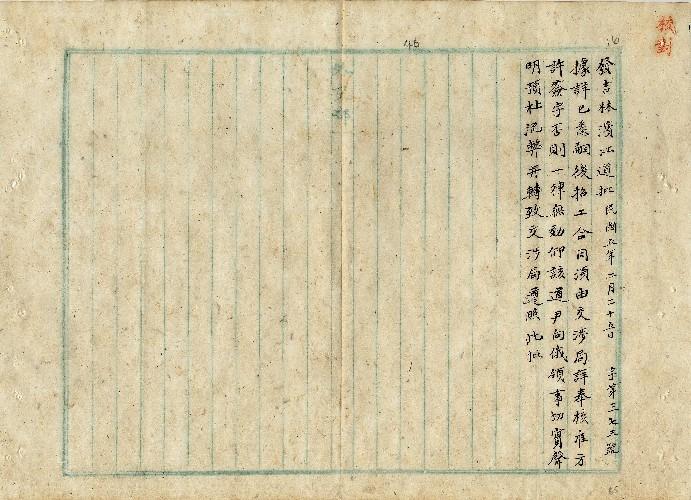 發吉林濱江道批 民國五年一月二十五日 字第三七六號
據詳已悉嗣後招工合同須由交涉局詳奉核准方
許簽字否則一律無効仰該道尹向俄領事切實聲
明預杜流弊并轉致交涉局遵照此批
校對
46